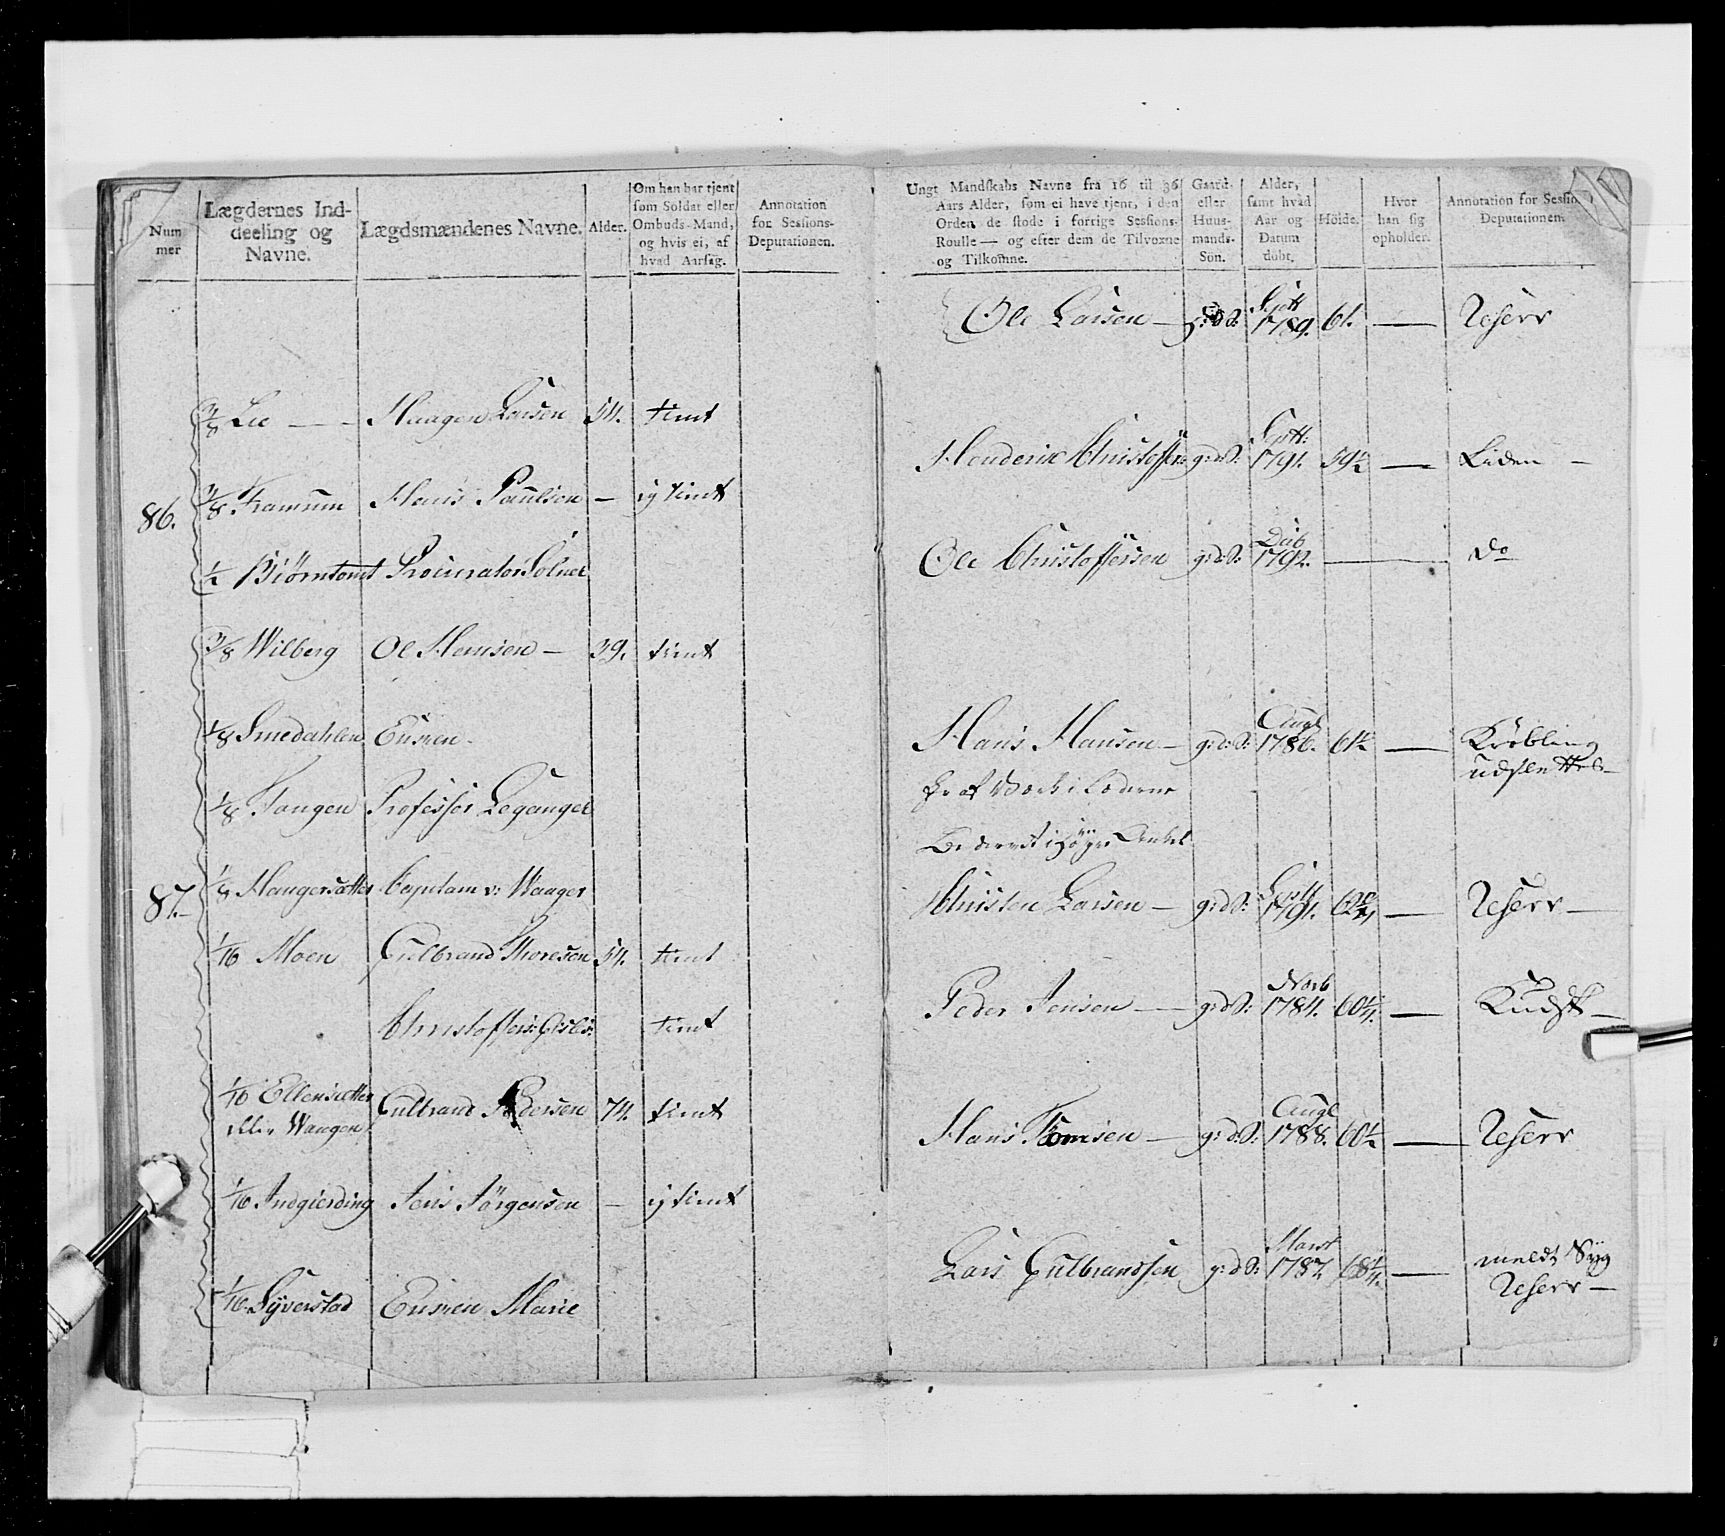 Num
mer
Lægdernes Ind-
deeling og
Navne.
Lægdsmændenes Navne.
Alder.
Om han har tjent
som Soldat eller
Ombuds-Mand,
og hvis ei, af
hvad Aarsag.
Annotation
for Sessions-
Deputationen.
86.
3/8 Lie — Haagen Larsen 54. tient
3/8 Framum Hans Paulsen — ej tient
1/2 Biørntomt Procurator Solner
87.
3/8 Wilberg Ol Hansen — 39. tient
1/8 Smedahlen Enken
1/8 Tangen Professor Leganger
1/8 Haugersætter Capitain v: Waager
1/16 Moen Gulbrand Thoresen 54. tient
Christoffer tient
1/16 Ellensætter Gulbrand Pedersen 74. tient
eller Waagen
1/16 Indgierding Jens Jörgensen — ej tient
1/16 Syverstad Enken Marie
Ungt Mandskabs Navne fra 16 til 36
Aars Alder, som ei have tjent, i den
Orden de stode i forrige Sessions-
Roulle — og efter dem de Tilvoxne
og Tilkomne.
Gaard-
eller
Huus-
mands-
Son.
Alder,
samt hvad
Aar og
Datum
döbt.
Höide.
Hvor
han sig
opholder.
Annotation for Sessions
Deputationen
Ole Larsen — 1789. 61. — Reserv
Henderik Christoffers: g:d:S: 1791. 59½ — Liden —
Decb
Ole Christoffersen g:d:S: 1792. — do
Aug
Hans Hansen — g:d:S: 1786. 61½ — Krøbling
udslettes —
Er af Værk i Lederne
Bedervet i høyre Ankel
Christen Larsen — g:d:S: 1791. — Reserv —
Novb
Peder Jensen — g:d:S: 1784. 60¼. — Kudsk —
Aug
Hans Tomsen — g:d:S: 1788. 60½ — Reserv
Mart
Lars Gulbrandsen g:d:S: 1787. 68¼. — meldt Syg
Reserv —